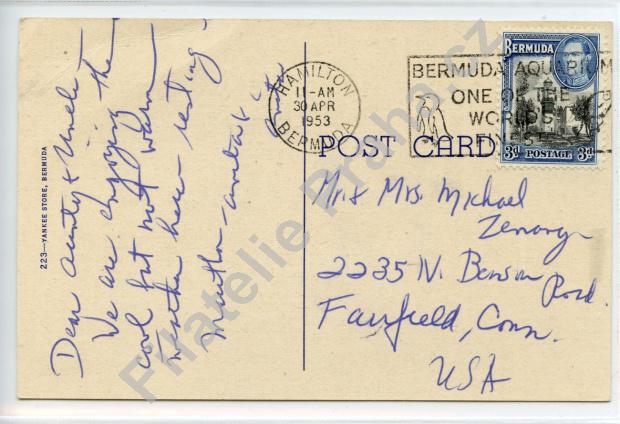 223—YANKEE STORE, BERMUDA
Dear Aunty & Uncle
We are enjoying the
cool but not warm
weather here resting
Martha
HAMILTON
11-AM
30 APR
1953
BERMUDA
BERMUDA AQUARIUM
ONE OF THE
WORLDS
BERMUDA
3d POSTAGE 3d
POST CARD
Mr & Mrs. Michael
2235 N. Benson
Road.
Fairfield, Conn.
USA
Filatelie Praha.cz